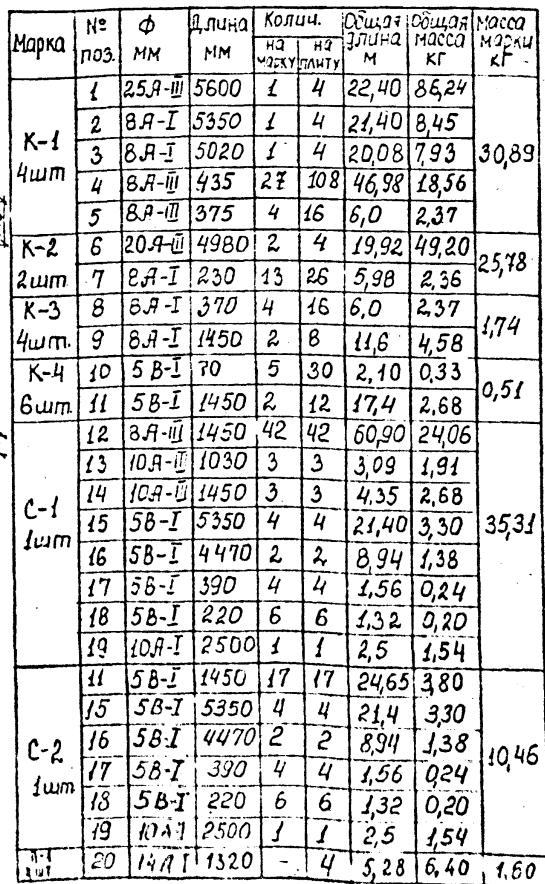 Марка № поз. Ф мм Длина мм Колич. на марку на плиту Общая длина м Общая масса кг Масса марки кг
К-1 4шт 30,89
1 25А-III 5600 1 4 22,40 86,24
2 8А-I 5350 1 4 21,40 8,45
3 8А-I 5020 1 4 20,08 7,93
4 8А-III 435 27 108 46,98 18,56
5 8А-III 375 4 16 6,0 2,37
К-2 2шт 25,78
6 20А-III 4980 2 4 19,92 49,20
7 8А-I 230 13 26 5,98 2,36
К-3 4шт. 1,74
8 8А-I 370 4 16 6,0 2,37
9 8А-I 1450 2 8 11,6 4,58
К-4 6шт 0,51
10 5В-I 70 5 30 2,10 0,33
11 5В-I 1450 2 12 17,4 2,68
С-1 1шт 35,31
12 8А-III 1450 42 42 60,90 24,06
13 10А-II 1030 3 3 3,09 1,91
14 10А-II 1450 3 3 4,35 2,68
15 5В-I 5350 4 4 21,40 3,30
16 5В-I 4470 2 2 8,94 1,38
17 5В-I 390 4 4 1,56 0,24
18 5В-I 220 6 6 1,32 0,20
19 10А-I 2500 1 1 2,5 1,54
С-2 1шт 10,46
11 5В-I 1450 17 17 24,65 3,80
15 5В-I 5350 4 4 21,4 3,30
16 5В-I 4470 2 2 8,94 1,38
17 5В-I 390 4 4 1,56 0,24
18 5В-I 220 6 6 1,32 0,20
19 10А-I 2500 1 1 2,5 1,54
20 14А I 1320 - 4 5,28 6,40 1,60